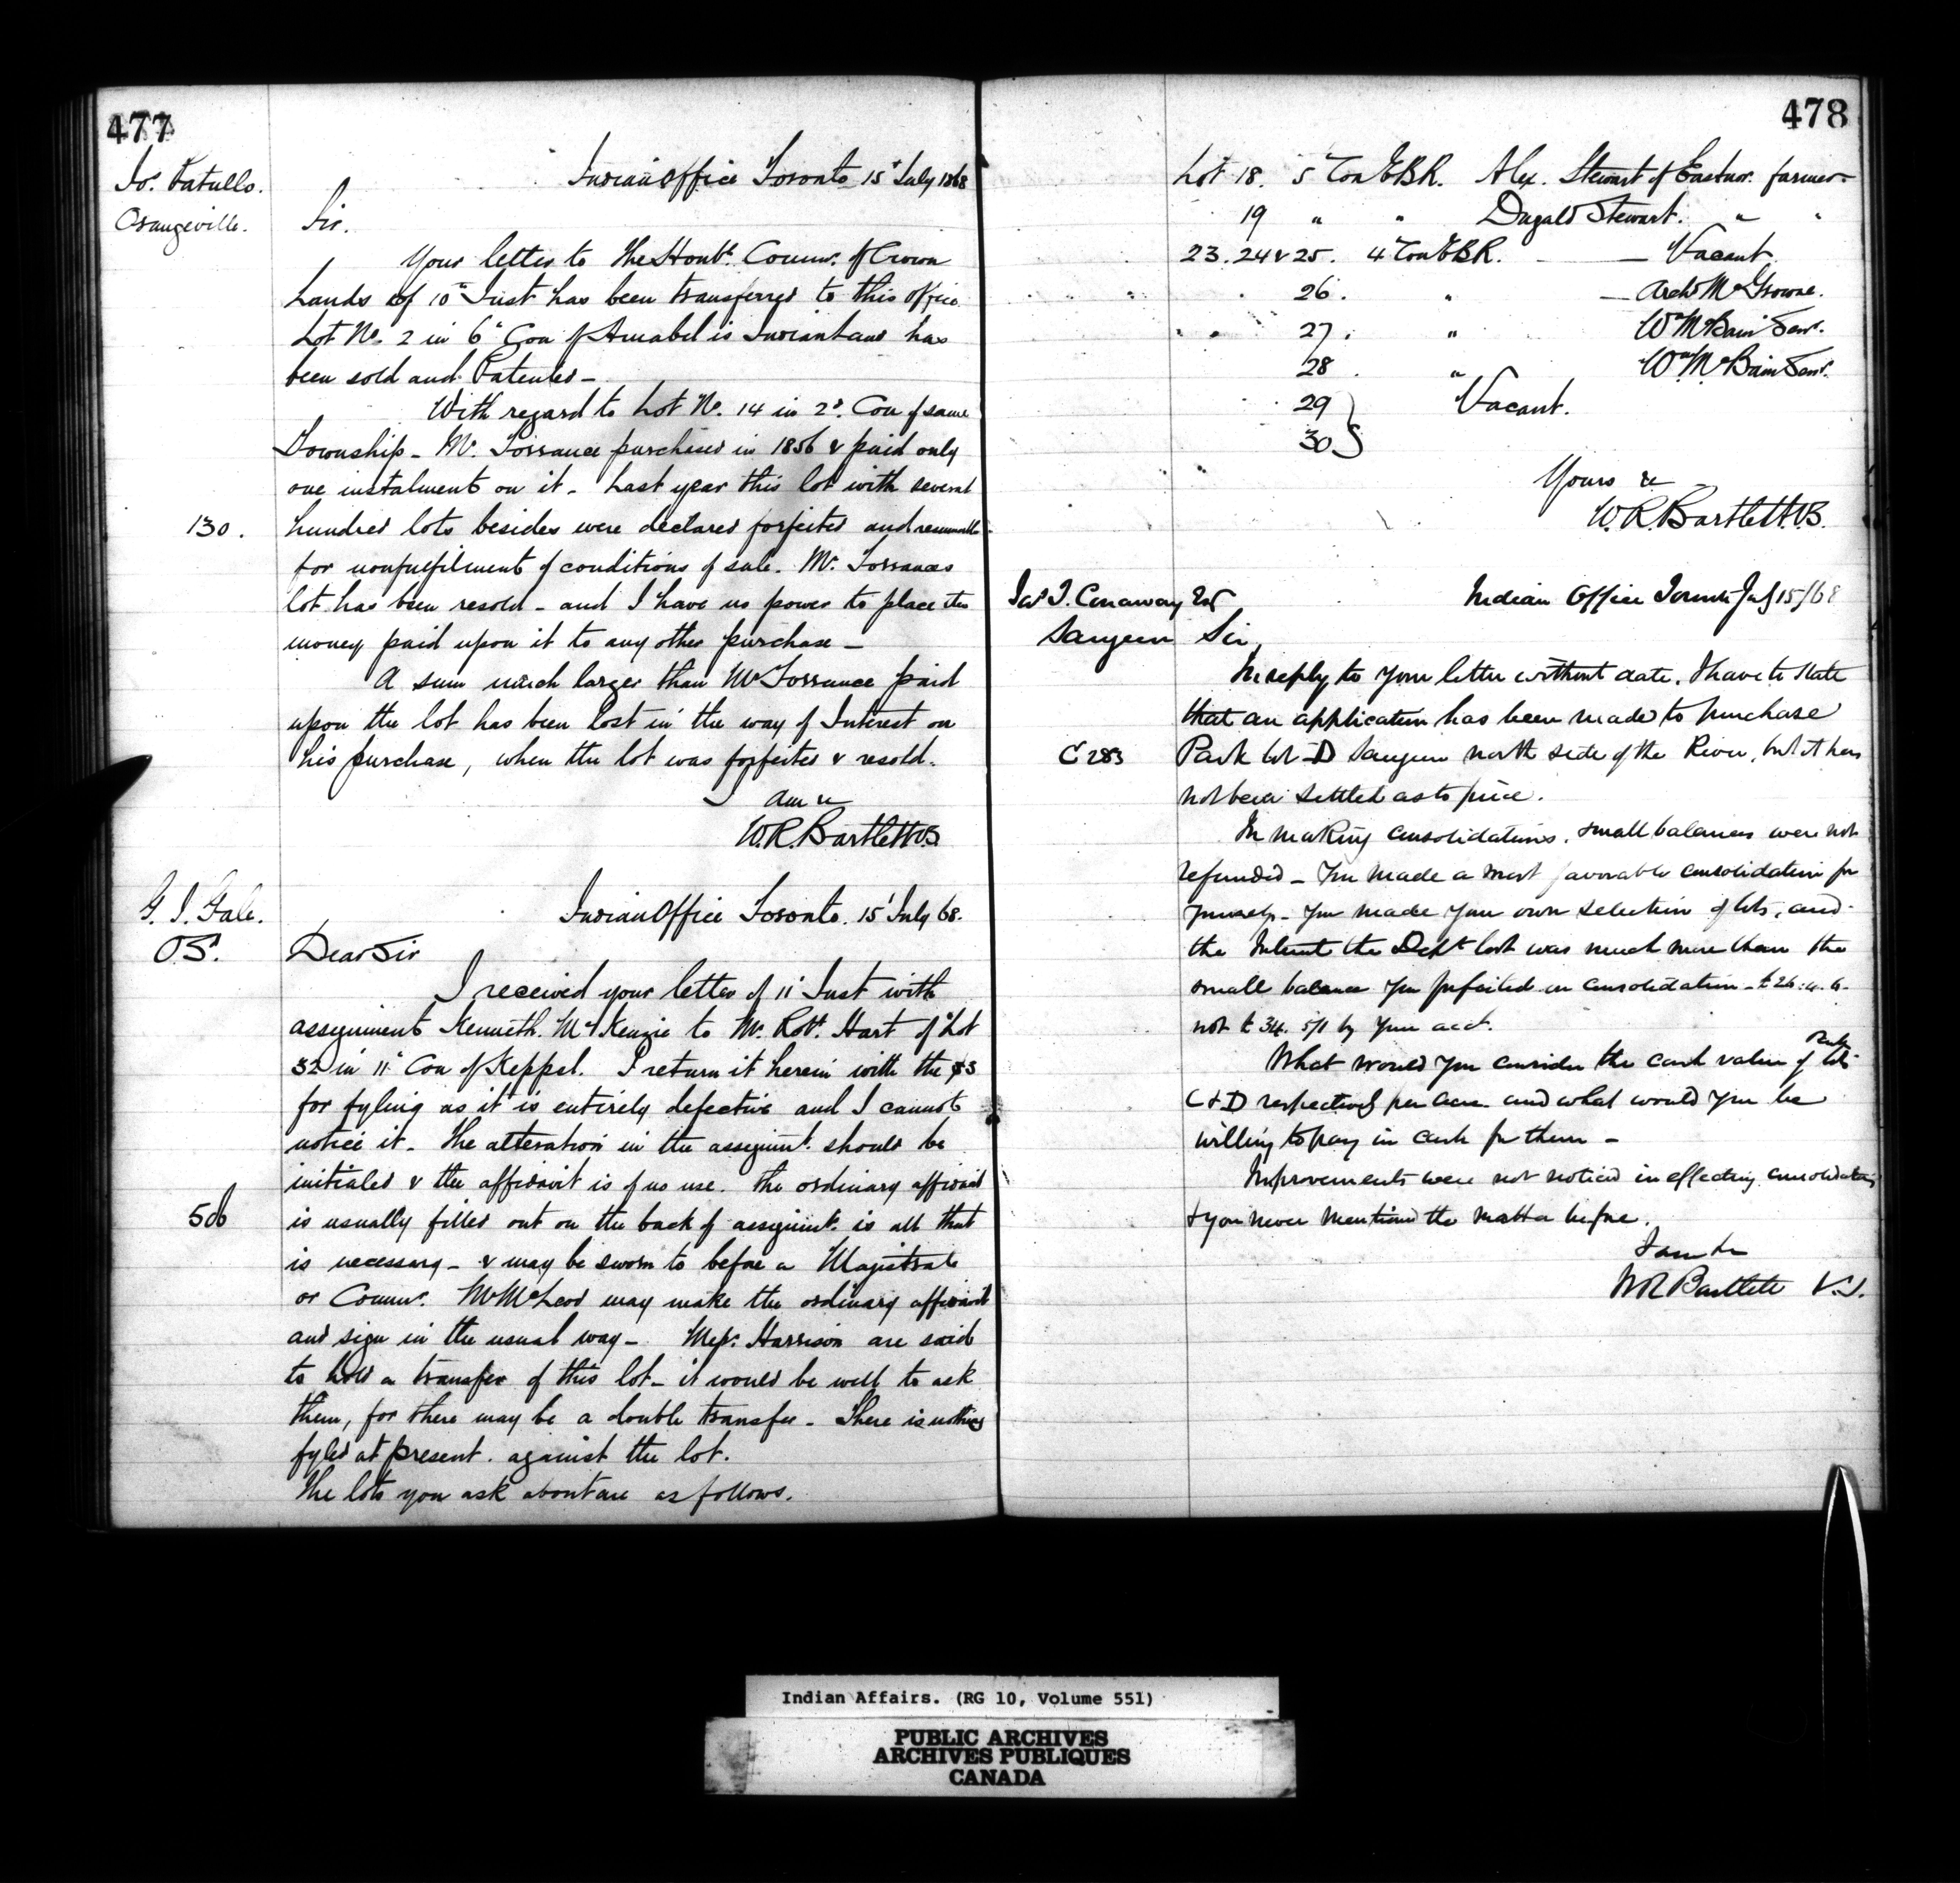 477
Jos. Patullo.
Orangeville.
Indian Office Toronto 15th July 1868
Sir.
Your letter to The Honble. Commr. of Crown
Lands of 10th Inst has been transferred to this office
Lot No. 2 in 6th Con of Amabel is Indian Land has
been sold and Patented -
With regard to Lot No. 14 in 2d. Con of same
Township - Mr. Torrance purchased in 1856 & paid only
one instalment on it - Last year this lot with several
130.
hundred lots besides were declared forfeited and resumable
for nonfulfilment of conditions of sale. Mr. Torrances
lot has been resold - and I have no power to place the
money paid upon it to any other purchase -
A sum much larger than Mr Torrance paid
upon the lot has been lost in the way of Interest on
his purchase, when the lot was forfeited & resold.
I am &c
W.R. Bartlett VS
G. J. Gale.
O.S.
Indian Office Toronto. 15th July 68.
Dear Sir
I received your letter of 11th Inst with
assignment Kenneth. McKenzie to Mr. Robt. Hart of Lot
32 in 11th Con of Keppel. I return it herein with the $3
for fyling as it is entirely defective and I cannot
notice it - The alteration in the assignmt. should be
initialed & the affidavit is of no use. The ordinary affidavit
506
is usually filled out on the back of assignmt. is all that
is necessary - & may be sworn to before a Magistrate
or Commr. Mr McLeod may make the ordinary affidavit
and sign in the usual way - Messrs. Harrison are said
to hold a transfer of this lot - it would be well to ask
them, for there may be a double transfer - There is nothing
fyled at present. against the lot.
The lots you ask about are as follows.
478
Lot 18. 5th Con EBR. Alex. Stewart of Eastnor. farmer
19 " " Dugald Stewart. " "
23. 24 & 25. 4th Con EBR. — Vacant
26. " — Archd McGrowne.
27. " Wm McBain Senr.
28. " Wm McBain Senr.
29 } Vacant.
30 }
Yours &c
W.R. Bartlett VS.
Jas T. Conaway Esqr
Saugeen
Indian Office Toronto July 15/68
Sir,
In reply to your letter without date, I have to state
that an application has been made to purchase
C 283
Park lot - D Saugeen north side of the River, but it has
not been settled as to price.
In making consolidations, small balances were not
refunded - You made a most favorable consolidation for
yourself - You made your own selection of lots, and
the Interest the Deptt lost was much more than the
small balance you forfeited in consolidation - £26.4.6.
not £34. 5/1 by your acct.
What would you consider the cash value of Park lots
C & D respectively per acre and what would you be
willing to pay in cash for them -
Improvements were not noticed in effecting consolidations
& you never mentioned the matter before.
I am &c
WR Bartlett V.S.
Indian Affairs. (RG 10, Volume 551)
PUBLIC ARCHIVES
ARCHIVES PUBLIQUES
CANADA